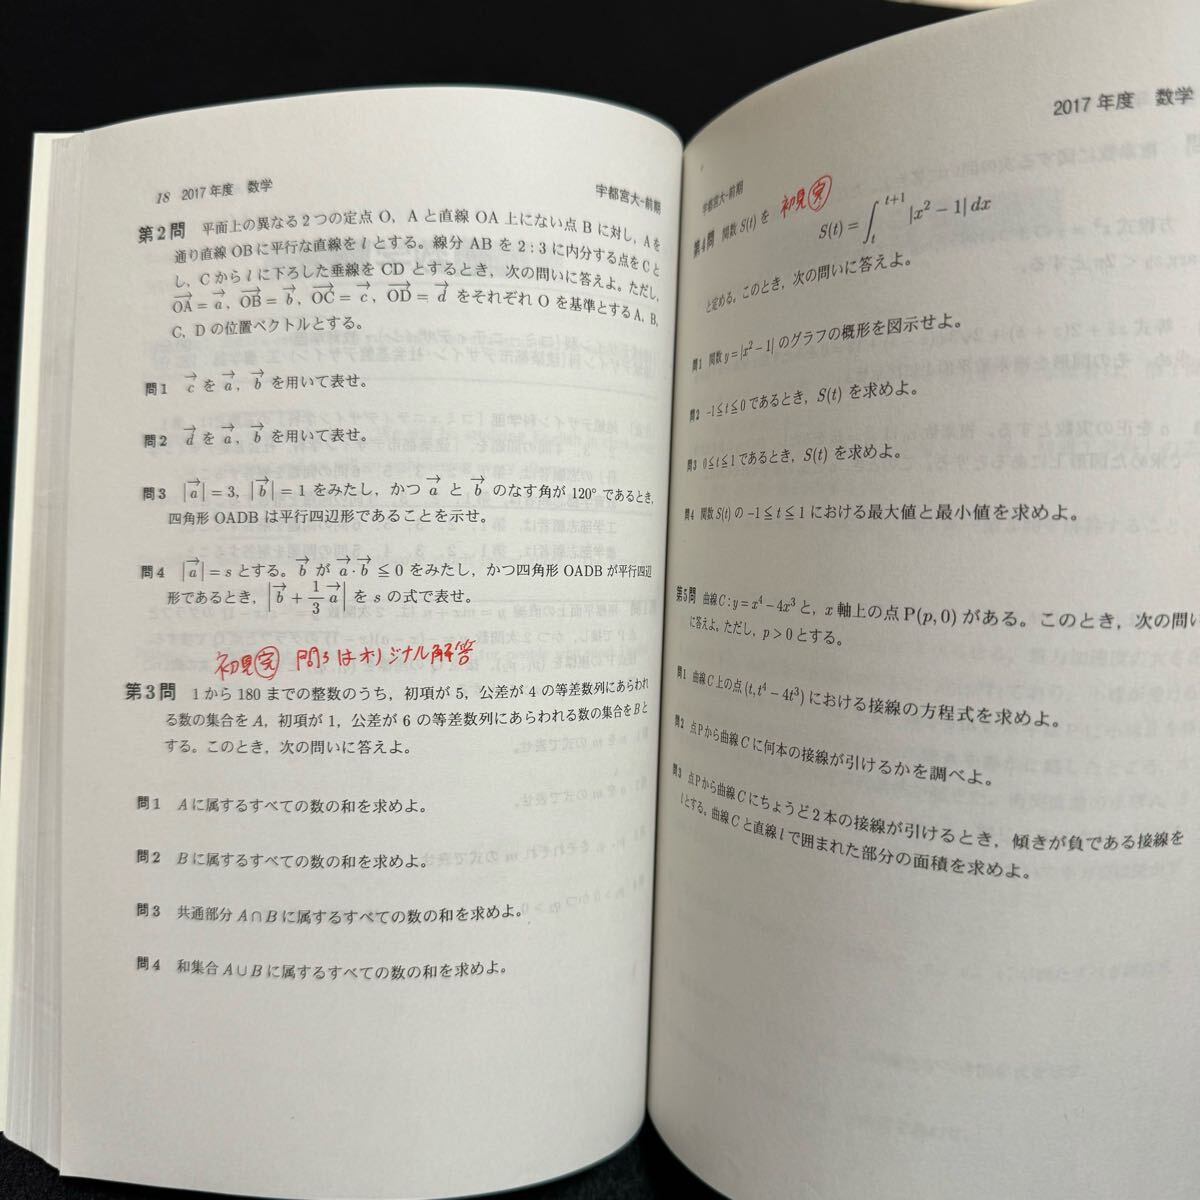 18 2017年度 数学
宇都宮大-前期
第2問 平面上の異なる2つの定点O，Aと直線OA上にない点Bに対し，Aを
通り直線OBに平行な直線をlとする。線分ABを2：3に内分する点をCと
し，Cからlに下ろした垂線をCDとするとき，次の問いに答えよ。ただし，
$\overrightarrow{OA}=\vec{a}$，$\overrightarrow{OB}=\vec{b}$，$\overrightarrow{OC}=\vec{c}$，$\overrightarrow{OD}=\vec{d}$ をそれぞれOを基準とするA，B，
C，Dの位置ベクトルとする。
問1 $\vec{c}$ を $\vec{a}$，$\vec{b}$ を用いて表せ。
問2 $\vec{d}$ を $\vec{a}$，$\vec{b}$ を用いて表せ。
問3 $|\vec{a}|=3$，$|\vec{b}|=1$ をみたし，かつ $\vec{a}$ と $\vec{b}$ のなす角が120°であるとき，
四角形OADBは平行四辺形であることを示せ。
問4 $|\vec{a}|=s$ とする。$\vec{b}$ が $\vec{a}\cdot\vec{b}\leqq 0$ をみたし，かつ四角形OADBが平行四辺
形であるとき，$\left|\vec{b}+\frac{1}{3}\vec{a}\right|$ をsの式で表せ。
初見完 問3はオリジナル解答
第3問 1から180までの整数のうち，初項が5，公差が4の等差数列にあらわれ
る数の集合をA，初項が1，公差が6の等差数列にあらわれる数の集合をBと
する。このとき，次の問いに答えよ。
問1 Aに属するすべての数の和を求めよ。
問2 Bに属するすべての数の和を求めよ。
問3 共通部分A∩Bに属するすべての数の和を求めよ。
問4 和集合A∪Bに属するすべての数の和を求めよ。
2017年度 数学
宇都宮大-前期
初見完
第4問 関数S(t)を
$S(t)=\int_{t}^{t+1}|x^2-1|\,dx$
と定める。このとき，次の問いに答えよ。
問1 関数 $y=|x^2-1|$ のグラフの概形を図示せよ。
問2 −1≦t≦0であるとき，S(t)を求めよ。
問3 0≦t≦1であるとき，S(t)を求めよ。
問4 関数S(t)の−1≦t≦1における最大値と最小値を求めよ。
第5問 曲線 $C:y=x^4-4x^3$ と，x軸上の点P(p, 0)がある。このとき，次の問い
に答えよ。ただし，p>0とする。
問1 曲線C上の点 $(t, t^4-4t^3)$ における接線の方程式を求めよ。
問2 点Pから曲線Cに何本の接線が引けるかを調べよ。
問3 点Pから曲線Cにちょうど2本の接線が引けるとき，傾きが負である接線を
lとする。曲線Cと直線lで囲まれた部分の面積を求めよ。